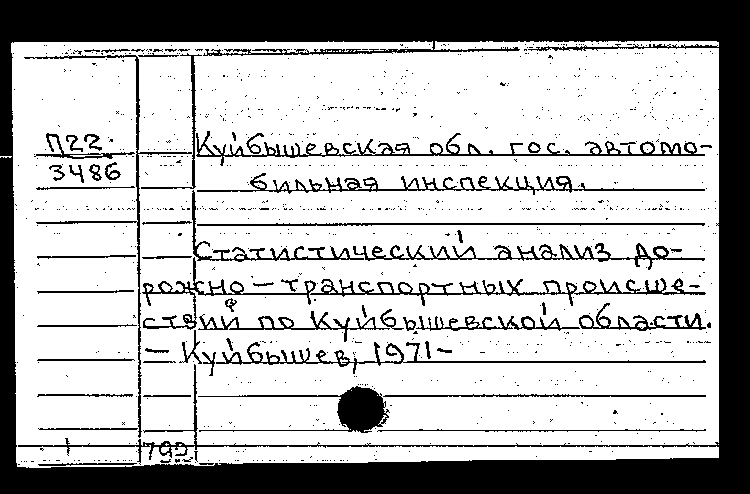 П22
3486
Куйбышевская обл. гос. автомо-
бильная инспекция.
Статистический анализ до-
рожно-транспортных происше-
ствий по Куйбышевской области.
— Куйбышев, 1971-
1 792